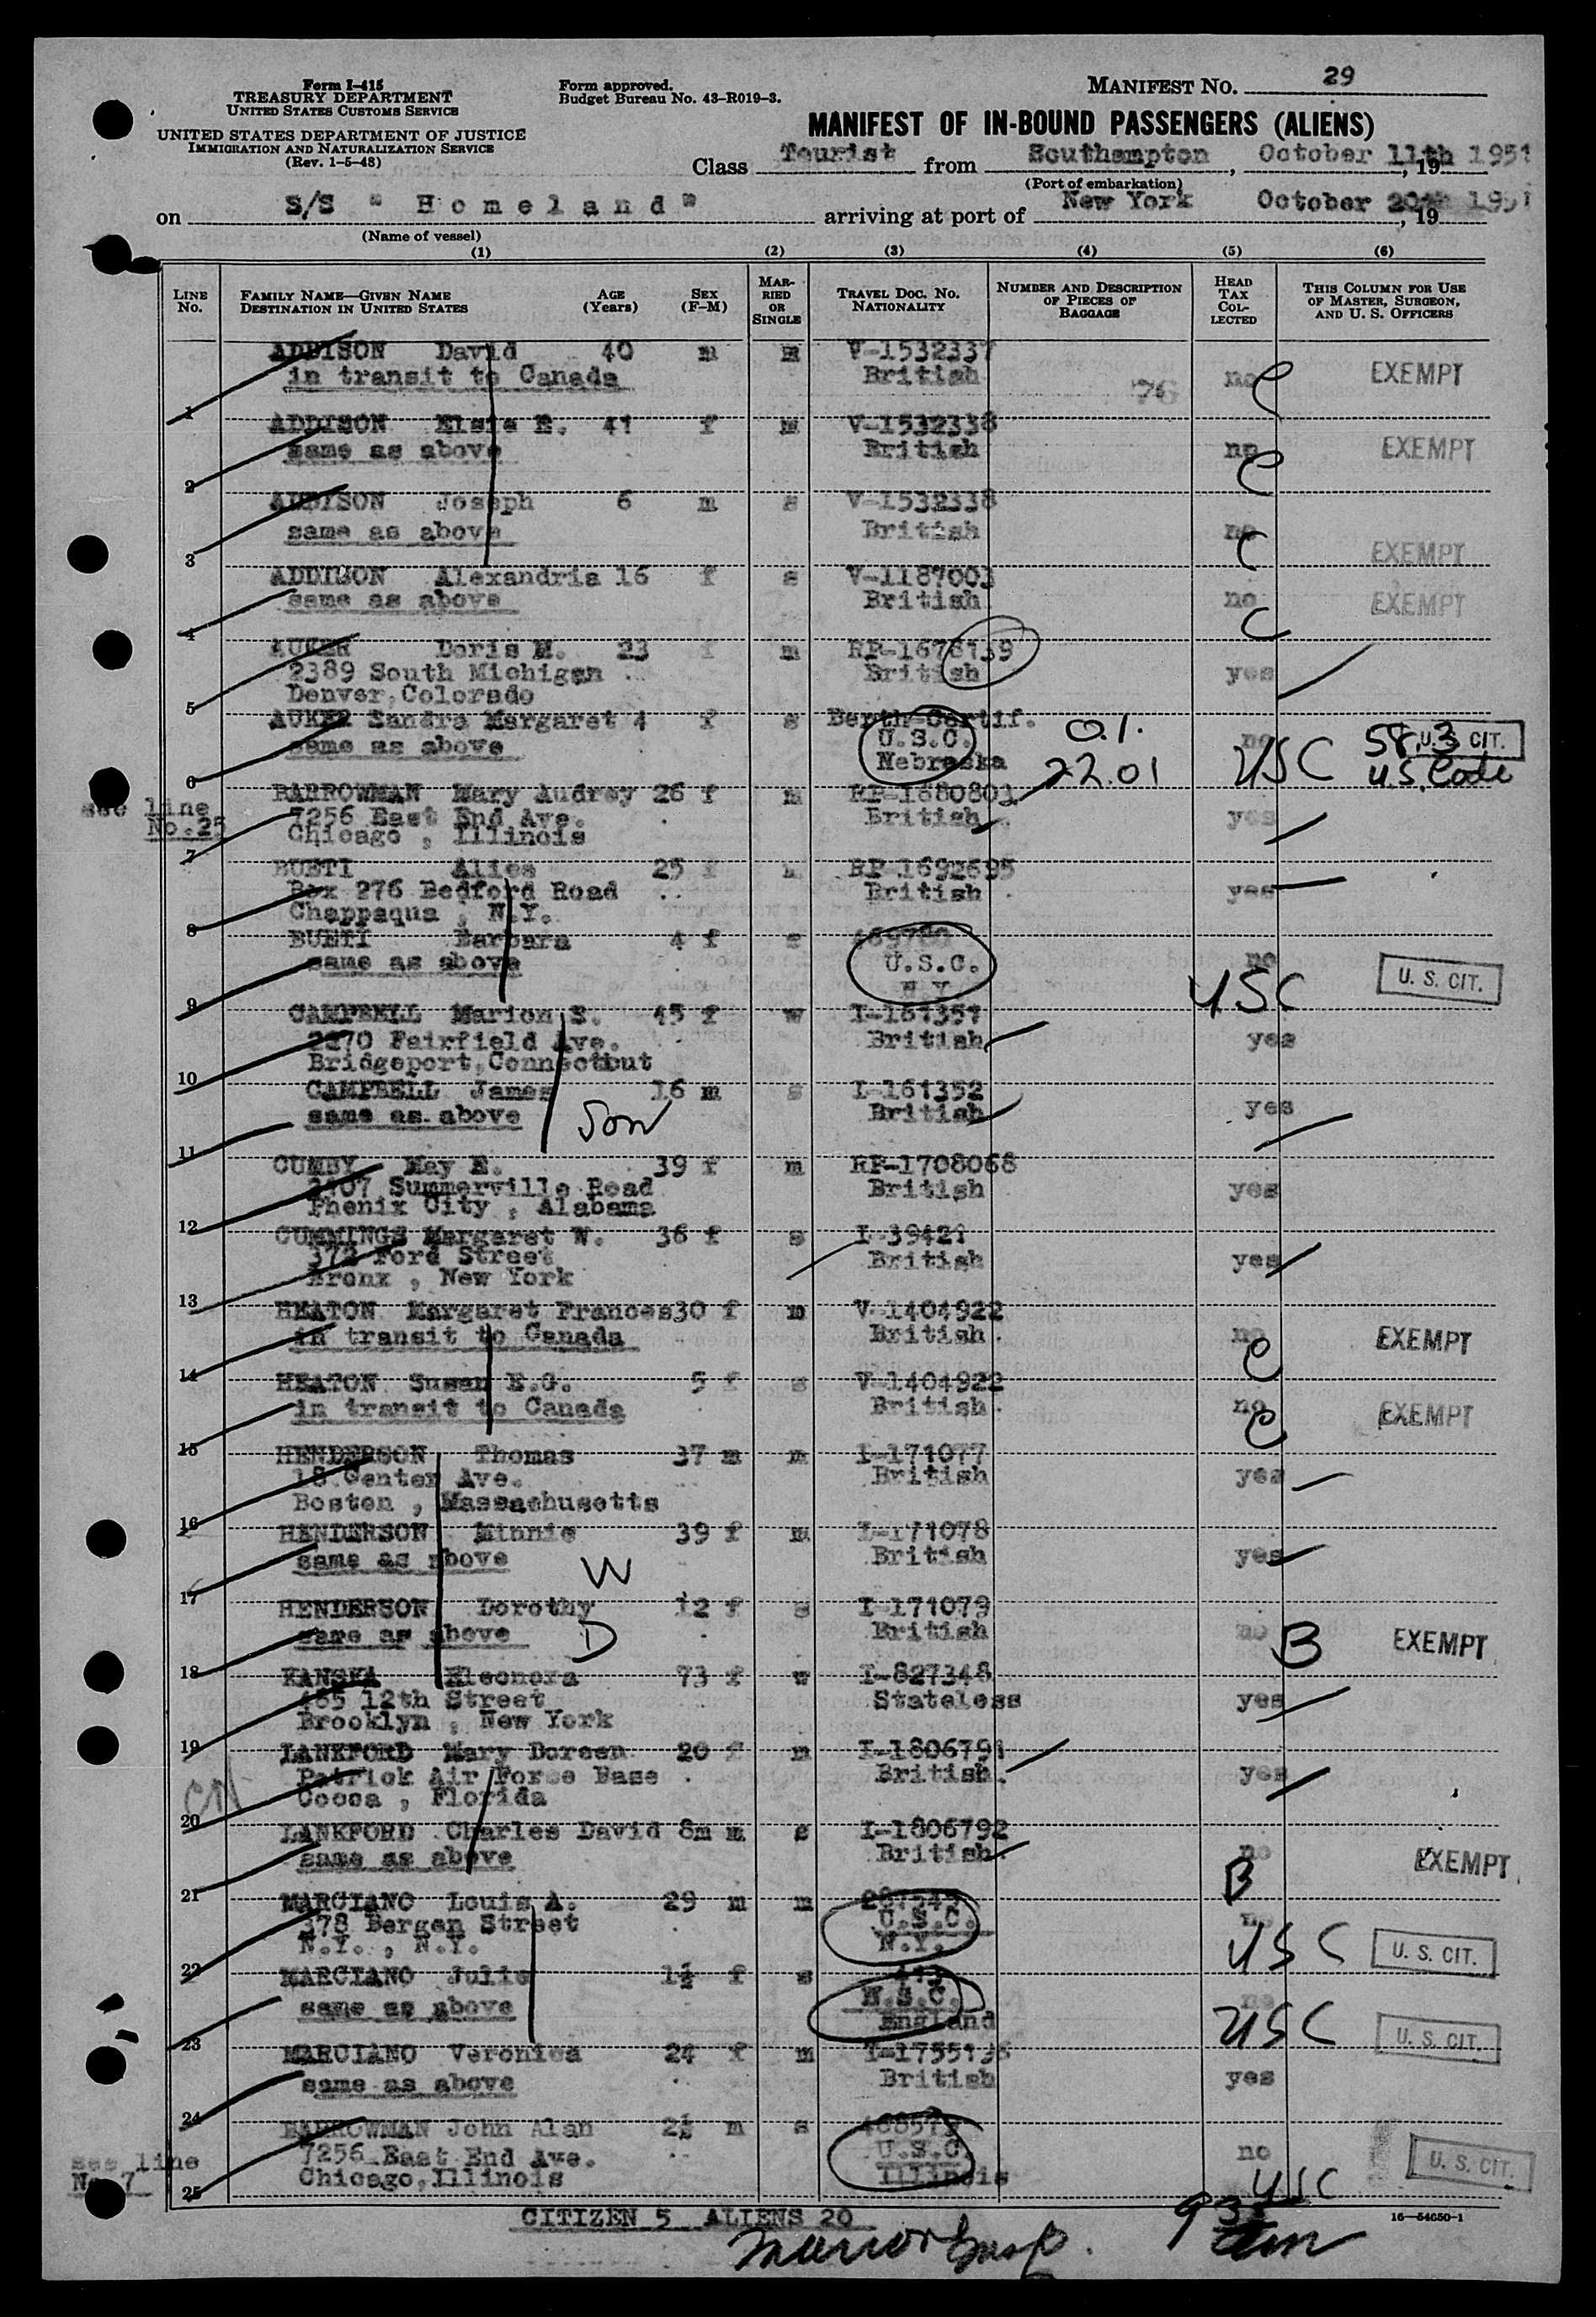 Form I-415
TREASURY DEPARTMENT
UNITED STATES CUSTOMS SERVICE
UNITED STATES DEPARTMENT OF JUSTICE
IMMIGRATION AND NATURALIZATION SERVICE
(Rev. 1-5-48)
Form approved.
Budget Bureau No. 43-R019-3.
MANIFEST NO. 29
MANIFEST OF IN-BOUND PASSENGERS (ALIENS)
Class Tourist from Southampton, October 11th 1951, 19
(Port of embarkation)
on S/S "Homeland" arriving at port of New York October 20th 1951, 19
(Name of vessel)
(1) (2) (3) (4) (5) (6)
LINE NO. FAMILY NAME—GIVEN NAME DESTINATION IN UNITED STATES AGE (Years) SEX (F-M) MARRIED OR SINGLE TRAVEL DOC. NO. NATIONALITY NUMBER AND DESCRIPTION OF PIECES OF BAGGAGE HEAD TAX COLLECTED THIS COLUMN FOR USE OF MASTER, SURGEON, AND U. S. OFFICERS
ADDISON David 40 m m V-1532337
in transit to Canada British 76 no C EXEMPT
1
ADDISON Elsie E. 41 f m V-1532338
same as above British no C EXEMPT
2
ADDISON Joseph 6 m s V-1532338
same as above British no C EXEMPT
3
ADDISON Alexandria 16 f s V-1187003
same as above British no C EXEMPT
4
AUKER Doris M. 23 f m RP-1678139
2389 South Michigan British yes
Denver, Colorado
5
AUKER Sandra Margaret 4 f s Berth Certif.
same as above U.S.C. O.I. no USC 58.3 U. S. CIT.
Nebraska 22.01 U.S. Code
6
BARROWMAN Mary Audrey 26 f m RP-1680803
see line No. 25 7256 East End Ave. British yes
Chicago, Illinois
7
BUETI Alice 25 f m RP-1692695
Box 276 Bedford Road British yes
Chappaqua, N.Y.
8
BUETI Barbara 4 f s
same as above U.S.C. no USC U. S. CIT.
N.Y.
9
CAMPBELL Marion S. 45 f w I-161351
2270 Fairfield Ave. British yes
Bridgeport, Connecticut
10
CAMPBELL James 16 m s I-161352
same as above Son British yes
11
CUMBY May E. 39 f m RP-1708068
2407 Summerville Road British yes
Phenix City, Alabama
12
CUMMINGS Margaret W. 36 f s I-39421
372 Ford Street British yes
Bronx, New York
13
HEATON Margaret Frances 30 f m V-1404922
in transit to Canada British no C EXEMPT
14
HEATON Susan E.G. 5 f s V-1404922
in transit to Canada British no C EXEMPT
15
HENDERSON Thomas 37 m m I-171077
18 Center Ave. British yes
Boston, Massachusetts
16
HENDERSON Minnie 39 f m I-171078
same as above W British yes
17
HENDERSON Dorothy 12 f s I-171079
same as above D British no B EXEMPT
18
KANSKA Eleonora 73 f w I-827348
465 12th Street Stateless yes
Brooklyn, New York
19
LANKFORD Mary Doreen 20 f m I-1806791
Patrick Air Force Base British yes
Cocoa, Florida
20
LANKFORD Charles David 8m m s I-1806792
same as above British no B EXEMPT
21
MARCIANO Louis A. 29 m m
378 Bergen Street U.S.C. no USC U. S. CIT.
N.Y., N.Y. N.Y.
22
MARCIANO Julie 1½ f s
same as above U.S.C. no USC U. S. CIT.
England
23
MARCIANO Veronica 24 f m I-1755136
same as above British yes
24
BARROWMAN John Alan 2½ m s
see line No. 7 7256 East End Ave. U.S.C. no USC U. S. CIT.
Chicago, Illinois Illinois
25
CITIZEN 5 ALIENS 20
16-54650-1